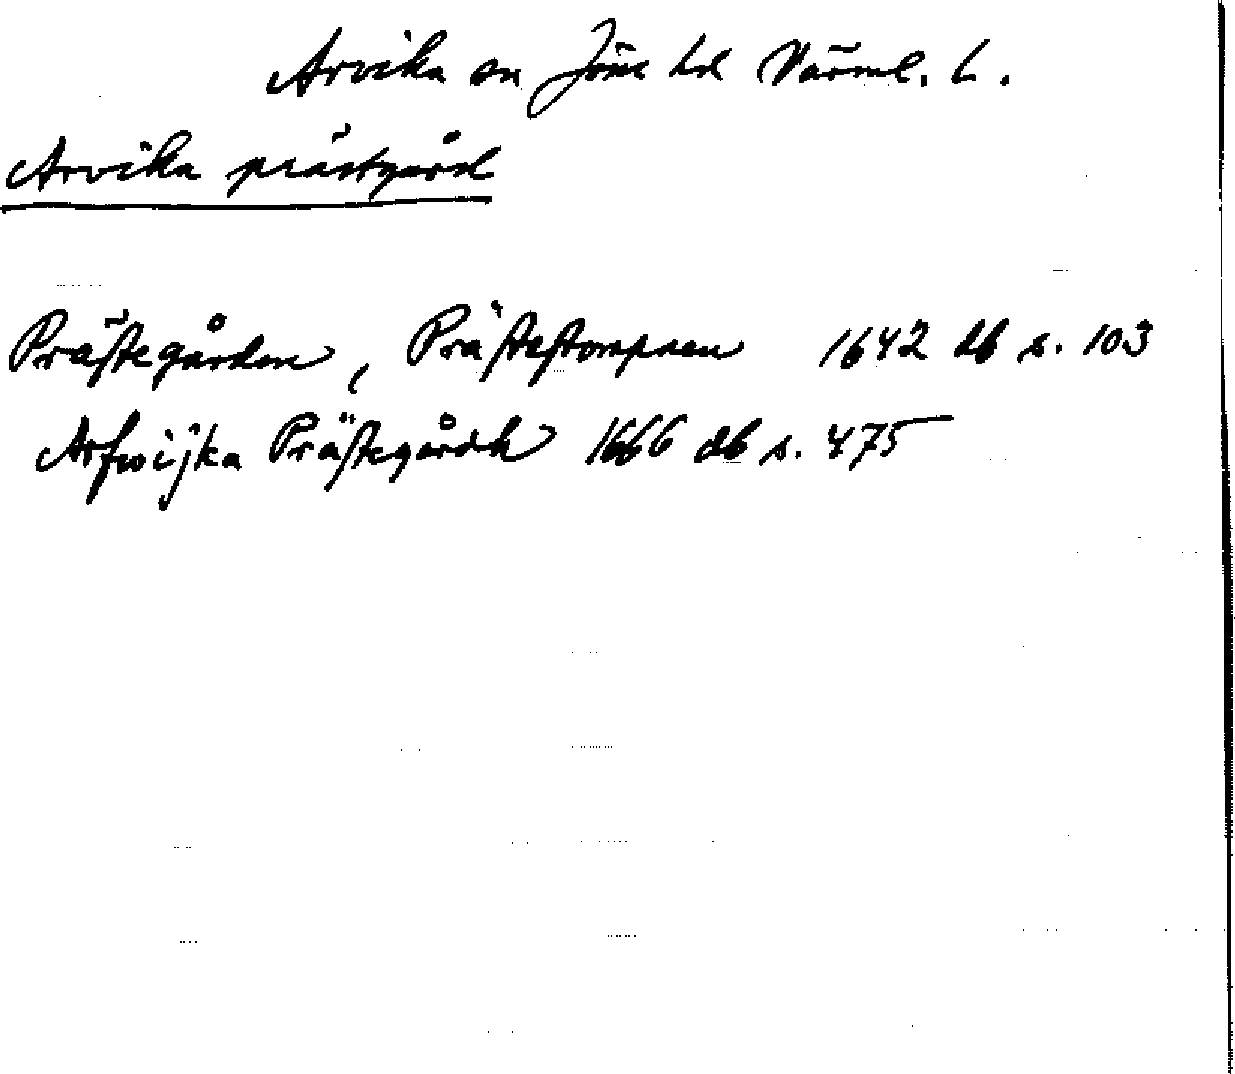 Arvika sn Jösse hd Värml. L.
Arvika prästgård
Prästegården, Prästestompnen 1642 db s. 103
Arfwijka Prästegårdh 1666 db s. 475